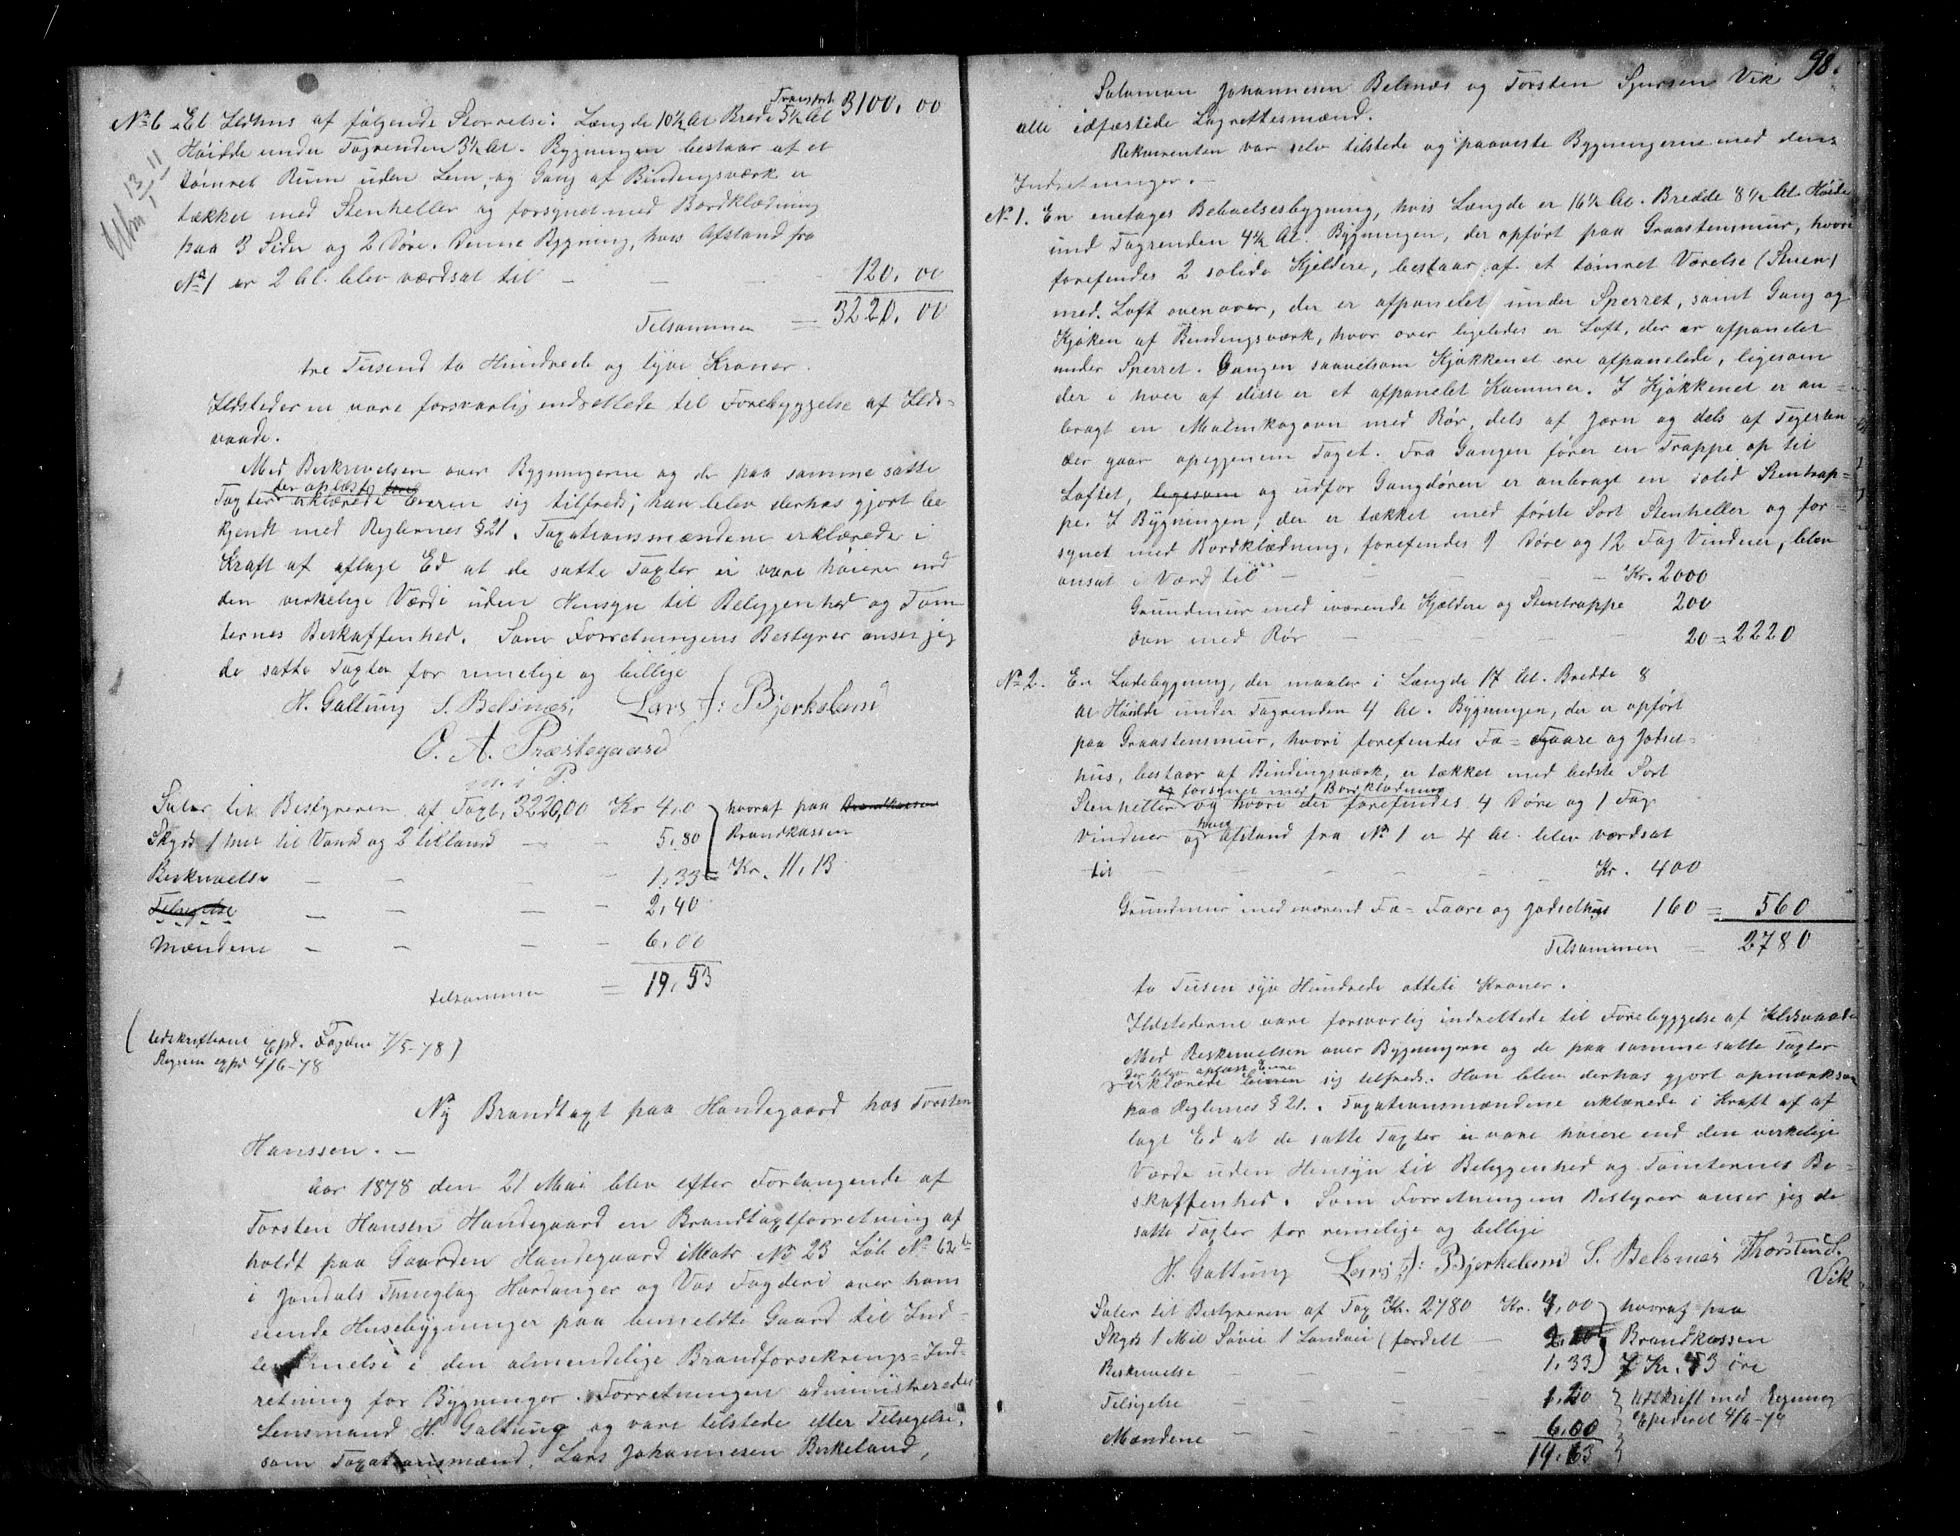 Transport 3100,00
No 6 Et Ildhus af følgende Størrelse: Længde 10½ Al Brede 5½ Al
Høide under Tagrenden 3½ Al. Bygningen bestaar af et
tømret Rum uden Lem, og Gang af Bindingsværk er
tækket med Stenheller og forsynet med Bordklædning
paa 3 Sider og 2 Døre. Denne Bygning, hvis Afstand fra
No 1 er 2 Al. blev værdsat til — — — 120,00
Tilsammen = 3220,00
tre Tusend to Hundrede og tyve Kroner.
Ildstederne vare forsvarlig indrettede til Forebyggelse af Ilds-
vaade.
Med Beskrivelsen over Bygningerne og de paa samme satte
Taxter der oplæstes erklærede Eieren sig tilfreds; han blev derhos gjort be
kjendt med Reglernes § 21. Taxationsmændene erklærede i
Kraft af aflagt Ed at de satte Taxter ei vare høiere end
den virkelige Værdi uden Hensyn til Beliggenhed og Tom
ternes Beskaffenhed. Som Forretningens Bestyrer anser jeg
de satte Taxter for rimelige og billige
H. Galtung S. Belsnæs, Lars J: Bjerkeland
O. A. Præstegaard
m. i P.
Salær til Bestyreren af Taxt, 3220,00 Kr 4,0 hvoraf paa Brandkassen
Skyds 1 Mil til Vand og 2 til Land — — 5,80 Brandkassen
Beskrivelse — — — — 1,33 = Kr. 11,13
Tilsigelse — — — — 2,40
Mændene — — — — 6,00
tilsammen = 19,53
(Udskriftene Expd. Fogden 7/5-78)
Regnen expd 4/6-78
Ny Brandtaxt paa Handegaard hos Torsten
Hanssen. —
Aar 1878 den 21 Mai blev efter Forlangende af
Torsten Hansen Handegaard en Brandtaxtforretning af
holdt paa Gaarden Handegaard Matr No 23 Løb No 62
i Jondals Thinglag Hardanger og Vos Fogderi over hans
eiende Husebygninger paa bemeldte Gaard til Ind-
lemmelse i den almendelige Brandforsikrings-Ind-
retning for Bygninger. Forretningen administreredes
Lensmand H. Galtung og vare tilstede efter Tilsigelse,
som Taxationsmænd, Lars Johannesen Birkeland,
98.
Salomon Johannesen Belsnæs og Torsten Sjursen Vik
alle edfæstede Lagrettesmænd.
Rekvirenten var selv tilstede og paaviste Bygningerne med deres
Indretninger. —
No 1. En enetages Beboelsesbygning, hvis Længde er 16½ Al. Bredde 8½ Al. Høide
und Tagrenden 4½ Al. Bygningen, der opført paa Graastensmur, hvori
forefindes 2 solide Kjeldere, bestaar af et tømret Værelse (Stuen)
med Loft ovenover, der er afpanelet under Sperret, samt Gang og
Kjøken af Bindingsværk, hvor over ligeledes er Loft, der er afpanelet
under Sperret. Gangen saavelsom Kjøkkenet ere afpanelede, ligesom
der i hver af disse er et afpanelet Kammer. I Kjøkkenet er an-
bragt en Malmkogovn med Rør, dels af Jærn og dels af Teglsten
der gaar op igjenem Taget. Fra Gangen fører en Trappe op til
Loftet, ligesom og udfor Gangdøren er anbragt en solid Stentrap-
pe. I Bygningen, der er tækket med første Sort Stenheller og for-
synet med Bordklædning, forefindes 9 Døre og 12 Fag Vinduer, blev
ansat i Værd til — — — — Kr. 2000
Grundmur med iværende Kjældere og Stentrappe 200
Ovn med Rør — — — — 20 = 2220
No 2. En Ladebygning, der maaler i Længde 17 Al. Bredde 8
Al Høide under Tagrenden 4 Al. Bygningen, der er opført
paa Graastensmur, hvori forefindes Fæ- Faare og Jødsel-
hus, bestaar af Bindingsværk, er tækket med bedste Sort
og forsynet med Bordklædning
Stenheller og hvori der forefindes 4 Døre og 1 Fag
Vinduer og hvis Afstand fra No 1 er 4 Al. blev værdsat
til — — — — Kr. 400
Grundmur med iværend Fæ- Faare og Jødselhus 160 = 560
Tilsammen — 2780
to Tusen syv Hundrede otteti Kroner.
Ildstederne vare forsvarlig indrettede til Forebyggelse af Ildsvaade
Med Beskrivelsen over Bygningerne og de paa samme satte Taxter
der blev oplæst Eierne
erklærede Eieren sig tilfreds. Han blev derhos gjort opmærksom
paa Reglernes § 21. Taxationsmændene erklærede i Kraft af af
lagt Ed at de satte Taxter ei vare høiere end den virkelige
Værde uden Hensyn til Beliggenhed og Tomternes Be-
skaffenhed. Som Forretningens Bestyrer anser jeg de
satte Taxter for rimelige og billige
H. Galtung Lars J: Bjerkeland S. Belsnæs Thorsten S.
Vik
Salær til Bestyreren af Tax Kr. 2780 Kr. 4,00 hvoraf paa
Skyds 1 Mil Søvei 1 Landvei (fordelt — 2,10 Brandkassen
Beskrivelse — — — 1,33 7 Kr. 43 øre
Tilsigelse — — — 1,20 Udskrift med Regning
Mændene — — — — 6,00 Expederet 4/6-78
14,63